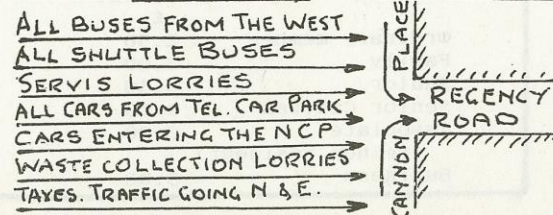 ALL BUSES FROM THE WEST
ALL SHUTTLE BUSES
SERVIS LORRIES
ALL CARS FROM TEL. CAR PARK
CARS ENTERING THE NCP
WASTE COLLECTION LORRIES
TAXES. TRAFFIC GOING N & E.
CANNON PLACE
REGENCY
ROAD